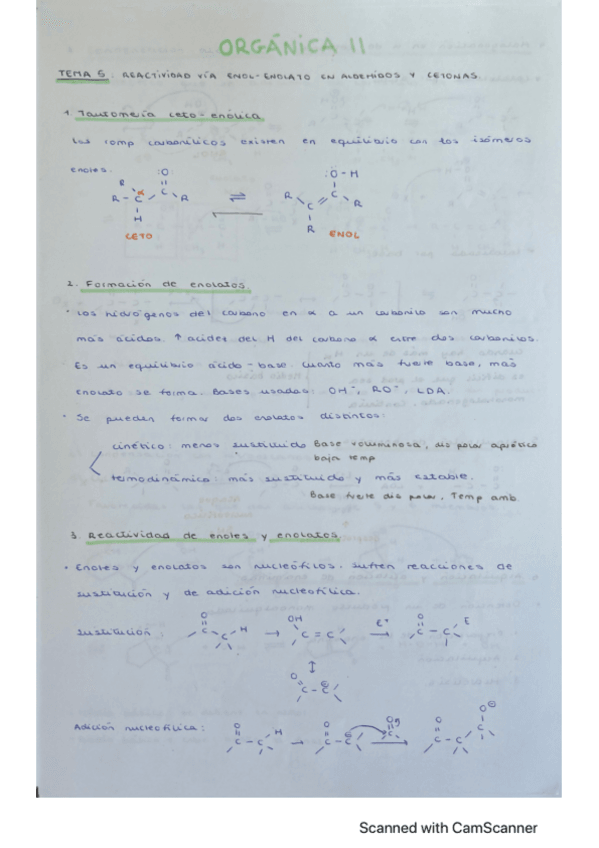 ORGÁNICA II
TEMA 5. REACTIVIDAD VÍA ENOL-ENOLATO EN ALDEHIDOS Y CETONAS.
1. Tautomería ceto-enólica
Los comp carbonílicos existen en equilibrio con los isómeros
enoles.
R :O :Ö-H
R-C α C R ⇌ R C=C R
H R
CETO ENOL
2. Formación de enolatos
· Los hidrógenos del carbono en α a un carbonilo son mucho
más ácidos. ↑ acidez del H del carbono α entre dos carbonilos.
Es un equilibrio ácido-base. Cuanto más fuerte base, más
enolato se forma. Bases usadas: OH⁻, RO⁻, LDA.
· Se pueden formar dos enolatos distintos:
cinético: menos sustituido Base voluminosa, dis polar aprótico
baja temp
termodinámico: más sustituido y más estable.
Base fuerte dis polar, Temp amb.
3. Reactividad de enoles y enolatos
· Enoles y enolatos son nucleófilos. Sufren reacciones de
sustitución y de adición nucleofílica.
Sustitución O C-C H → OH C=C E⁺ → O C-C E
↕
O C-C ⊖
Adición nucleofílica: O C-C H → O C-C ⊖ → O C-C-C O⊖
Scanned with CamScanner